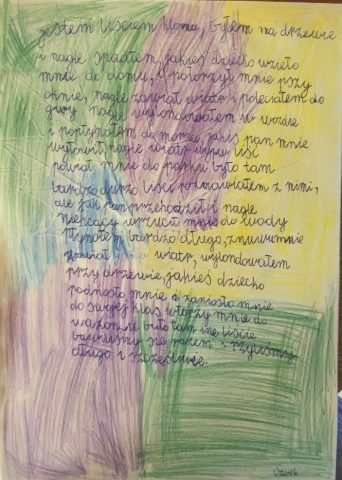 jestem liściem klona, byłem na drzewie
i nagle spadłem, jakieś dziecko wzieło
mnie do domu, i położył mnie przy
oknie, nagle zawiał wiatr i poleciałem do
góry nagle wylondowałem w wodzie
i popłynołem do morza jakiś pan mnie
wyłowił, nagle wiatr
powiał mnie do parku było tam
bardzo dużo liści, rozmawiałem z nimi,
ale jak pan przehodził i nagle
niehcący wrzucił mnie do wody
płynołem bardzo długo, znuwu mnie
zawiał wiatr, wylondowałem
przy drzewie, jakieś dziecko
podniosło mnie a zaniosło mnie
do swojej klasy włorzył mnie do
wazonu, było tam inne liście
bawiliśmy się razem i rzyliśmy
długo i szczęśliwie.